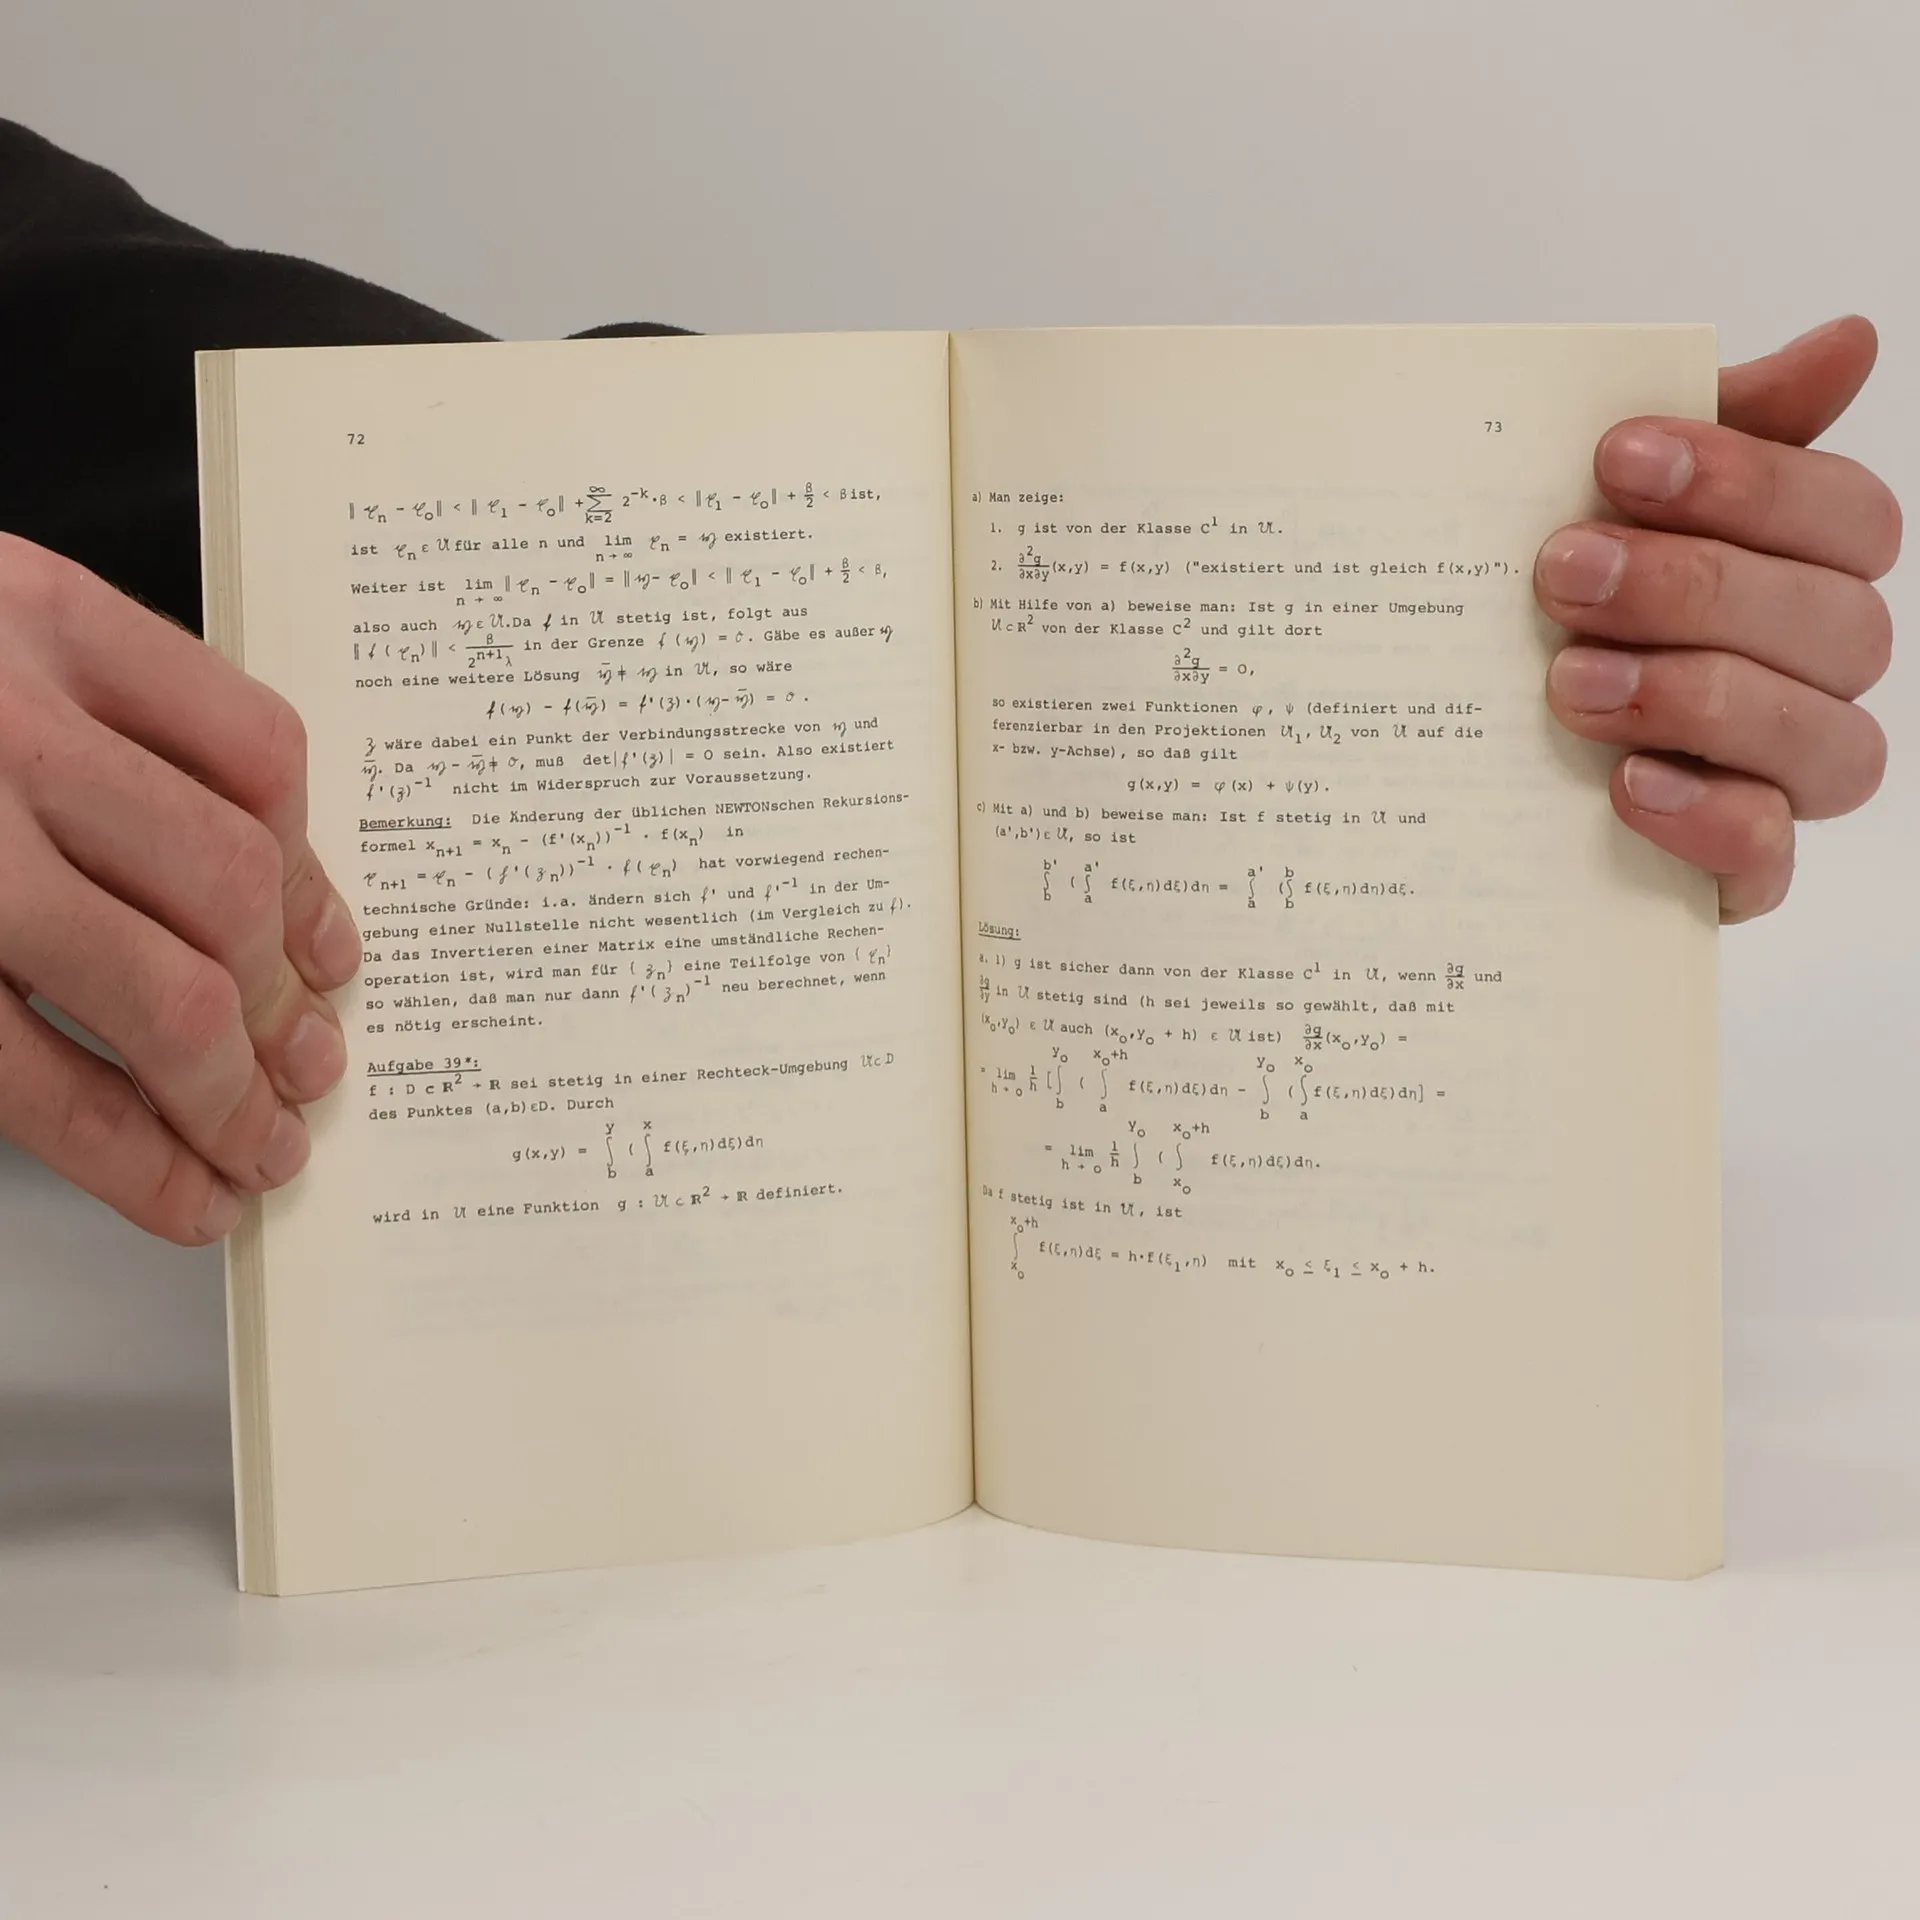 72
‖𝔵n - 𝔵o‖ < ‖𝔵1 - 𝔵o‖ + ∞∑k=2 2^-k·β < ‖𝔵1 - 𝔵o‖ + β/2 < β ist,
ist 𝔵n ε 𝔘 für alle n und lim n→∞ 𝔵n = 𝔶 existiert.
Weiter ist lim n→∞ ‖𝔵n - 𝔵o‖ = ‖𝔶 - 𝔵o‖ < ‖𝔵1 - 𝔵o‖ + β/2 < β,
also auch 𝔶 ε 𝔘. Da f in 𝔘 stetig ist, folgt aus
‖f(𝔵n)‖ < β/2^n+1 λ in der Grenze f(𝔶) = 𝔬. Gäbe es außer 𝔶
noch eine weitere Lösung 𝔶̄ ≠ 𝔶 in 𝔘, so wäre
f(𝔶) - f(𝔶̄) = f'(𝔷)·(𝔶-𝔶̄) = 𝔬.
𝔷 wäre dabei ein Punkt der Verbindungsstrecke von 𝔶 und
𝔶̄. Da 𝔶 - 𝔶̄ ≠ 𝔬, muß det|f'(𝔷)| = O sein. Also existiert
f'(𝔷)^-1 nicht im Widerspruch zur Voraussetzung.
Bemerkung: Die Änderung der üblichen NEWTONschen Rekursions-
formel xn+1 = xn - (f'(xn))^-1 · f(xn) in
𝔵n+1 = 𝔵n - (f'(𝔷n))^-1 · f(𝔵n) hat vorwiegend rechen-
technische Gründe: i.a. ändern sich f' und f'^-1 in der Um-
gebung einer Nullstelle nicht wesentlich (im Vergleich zu f).
Da das Invertieren einer Matrix eine umständliche Rechen-
operation ist, wird man für {𝔷n} eine Teilfolge von {𝔵n}
so wählen, daß man nur dann f'(𝔷n)^-1 neu berechnet, wenn
es nötig erscheint.
Aufgabe 39*:
f : D ⊂ R² → R sei stetig in einer Rechteck-Umgebung 𝔘⊂D
des Punktes (a,b)εD. Durch
g(x,y) = y∫b ( x∫a f(ξ,η)dξ)dη
wird in 𝔘 eine Funktion g : 𝔘 ⊂ R² → R definiert.
73
a) Man zeige:
1. g ist von der Klasse C¹ in 𝔘.
2. ∂²g/∂x∂y(x,y) = f(x,y) ("existiert und ist gleich f(x,y)").
b) Mit Hilfe von a) beweise man: Ist g in einer Umgebung
𝔘⊂R² von der Klasse C² und gilt dort
∂²g/∂x∂y = O,
so existieren zwei Funktionen φ, ψ (definiert und dif-
ferenzierbar in den Projektionen 𝔘1, 𝔘2 von 𝔘 auf die
x- bzw. y-Achse), so daß gilt
g(x,y) = φ(x) + ψ(y).
c) Mit a) und b) beweise man: Ist f stetig in 𝔘 und
(a',b')ε 𝔘, so ist
b'∫b ( a'∫a f(ξ,η)dξ)dη = a'∫a ( b∫b f(ξ,η)dη)dξ.
Lösung:
a. 1) g ist sicher dann von der Klasse C¹ in 𝔘, wenn ∂g/∂x und
∂g/∂y in 𝔘 stetig sind (h sei jeweils so gewählt, daß mit
(xo,yo) ε 𝔘 auch (xo,yo + h) ε 𝔘 ist) ∂g/∂x(xo,yo) =
= lim h→o 1/h [ yo∫b ( xo+h∫a f(ξ,η)dξ)dη - yo∫b ( xo∫a f(ξ,η)dξ)dη] =
= lim h→o 1/h yo∫b ( xo+h∫xo f(ξ,η)dξ)dη.
Da f stetig ist in 𝔘, ist
xo+h∫xo f(ξ,η)dξ = h·f(ξ1,η) mit xo ≤ ξ1 ≤ xo + h.